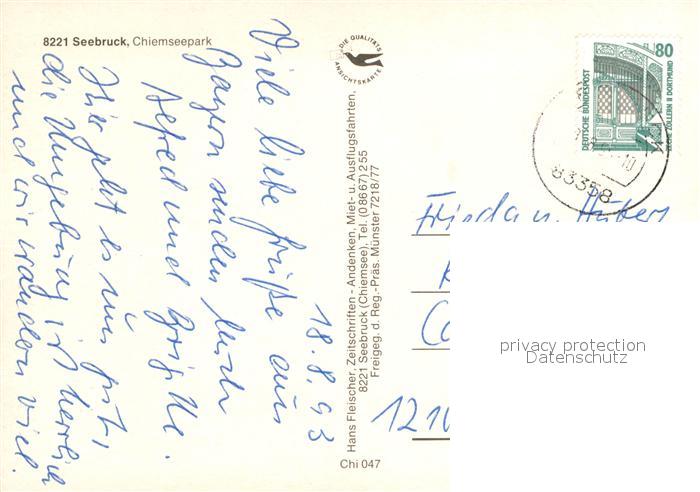 8221 Seebruck, Chiemseepark
DIE QUALITÄTS
ANSICHTSKARTE
80
DEUTSCHE BUNDESPOST
ZECHE ZOLLERN II DORTMUND
83358
18.8.93
Viele liebe Grüße aus
Bayern senden Euch
Alfred und Brigitte.
Hier geht es uns gut,
die Umgebung ist herrlich
und wir wandern viel.
Hans Fleischer, Zeitschriften - Andenken, Miet- u. Ausflugsfahrten,
8221 Seebruck (Chiemsee), Tel. (08667) 255
Freigeg. d. Reg.-Präs. Münster 7218/77
Frieda u. Hubert
1210
privacy protection
Datenschutz
Chi 047